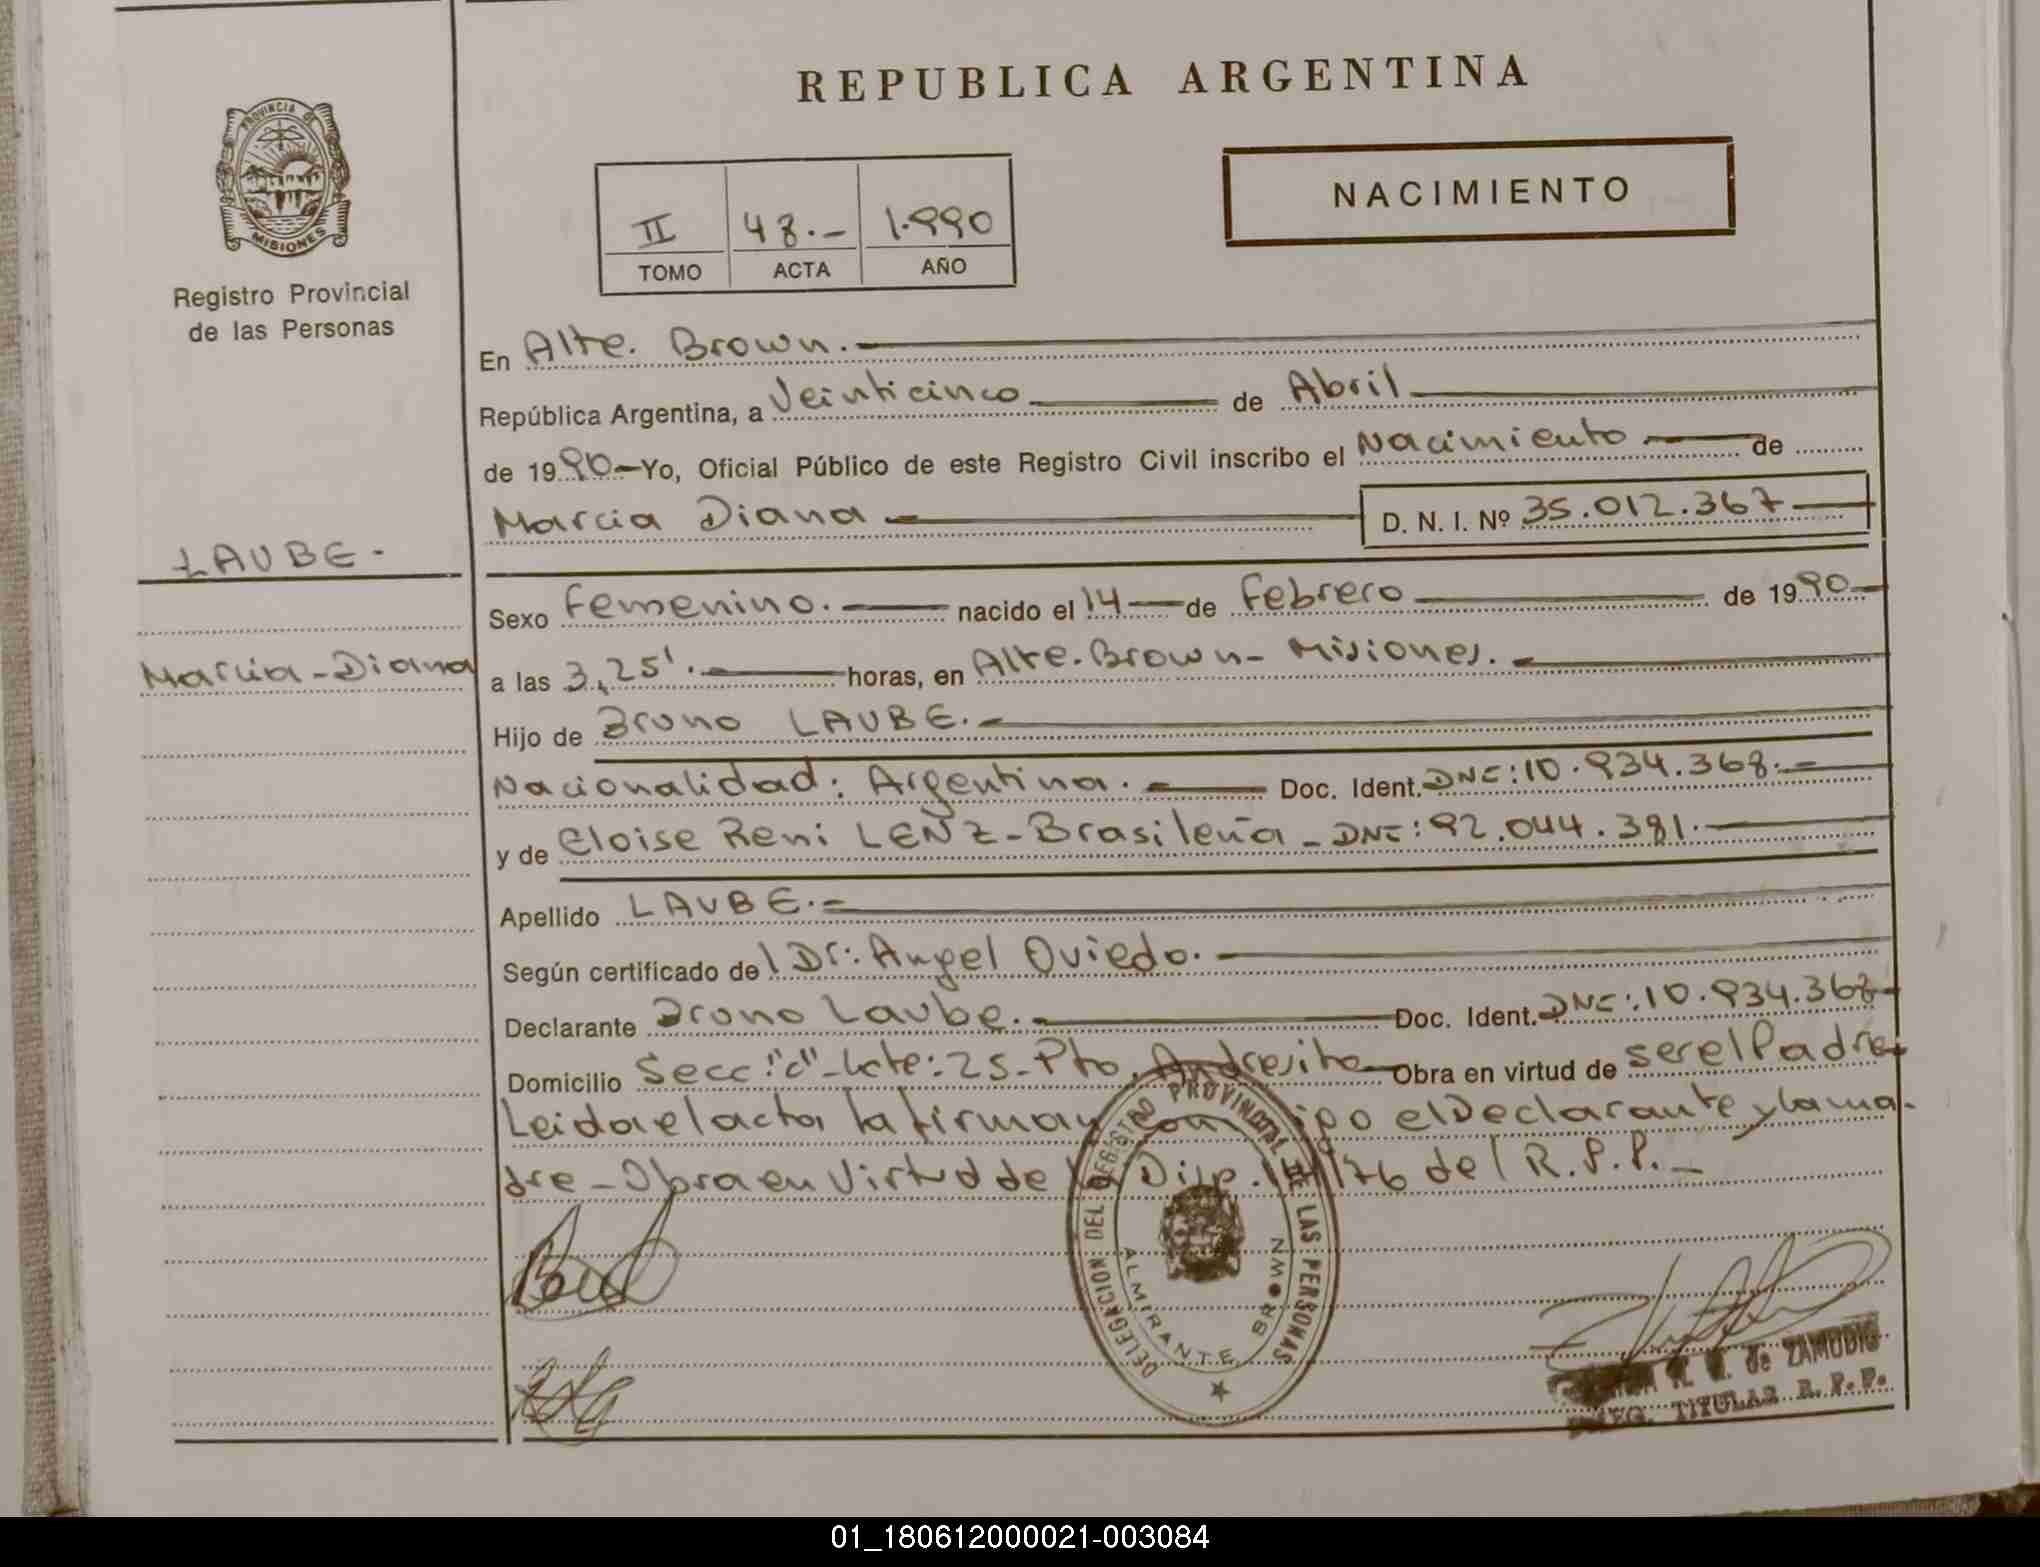 PROVINCIA DE
MISIONES
Registro Provincial
de las Personas
LAUBE.-
Marcia-Diana
REPUBLICA ARGENTINA
NACIMIENTO
II 48.- 1.990
TOMO ACTA AÑO
En Alte. Brown.
República Argentina, a Veinticinco de Abril
de 1990 Yo, Oficial Público de este Registro Civil inscribo el Nacimiento de
Marcia Diana D. N. I. Nº 35.012.367
Sexo Femenino. nacido el 14 de Febrero de 1990
a las 3,25'. horas, en Alte. Brown- Misiones.
Hijo de Bruno LAUBE.-
Nacionalidad: Argentina. Doc. Ident. DNI: 10.934.368.-
y de Eloise Reni LENZ-Brasileña-DNI: 92.044.381.
Apellido LAUBE.-
Según certificado del Dr: Angel Oviedo.
Declarante Bruno Laube. Doc. Ident. DNI: 10.934.368
Domicilio Secc "C"-Lote: 25-Pto. Andresito Obra en virtud de ser el Padre
Leida el acta, la firman el Declarante y la ma-
dre-Obra en Virtud de la Disp. /76 del R.P.P.-
DELEGACION DEL REGISTRO PROVINCIAL DE LAS PERSONAS
ALMIRANTE BROWN
de ZAMUDIO
TITULAR R. P. P.
01_180612000021-003084